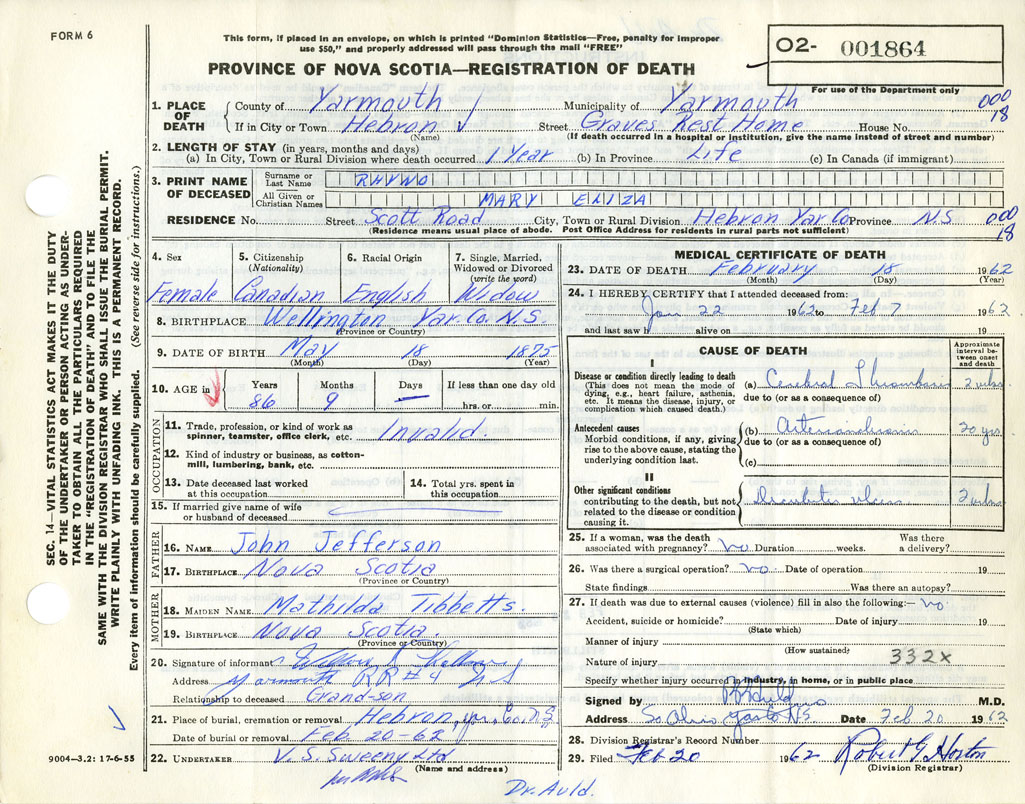 FORM 6
This form, if placed in an envelope, on which is printed "Dominion Statistics—Free, penalty for improper
use $50," and properly addressed will pass through the mail "FREE"
PROVINCE OF NOVA SCOTIA—REGISTRATION OF DEATH
02- 001864
For use of the Department only
1. PLACE OF DEATH
County of Yarmouth Municipality of Yarmouth 000
If in City or Town Hebron Street Graves Rest Home House No. 18
(Name) (If death occurred in a hospital or institution, give the name instead of street and number)
2. LENGTH OF STAY (in years, months and days)
(a) In City, Town or Rural Division where death occurred 1 Year (b) In Province Life (c) In Canada (if immigrant)
3. PRINT NAME OF DECEASED
Surname or Last Name RHYNO
All Given or Christian Names MARY ELIZA
RESIDENCE No. Street Scott Road City, Town or Rural Division Hebron Yar Co Province N.S 000
(Residence means usual place of abode. Post Office Address for residents in rural parts not sufficient) 18
4. Sex 5. Citizenship (Nationality) 6. Racial Origin 7. Single, Married, Widowed or Divorced (write the word)
Female Canadian English Widow
8. BIRTHPLACE Wellington Yar. Co. N.S.
(Province or Country)
9. DATE OF BIRTH May 18 1875
(Month) (Day) (Year)
10. AGE in Years Months Days If less than one day old
86 9 — hrs. or min.
OCCUPATION
11. Trade, profession, or kind of work as
spinner, teamster, office clerk, etc. Invalid.
12. Kind of industry or business, as cotton-
mill, lumbering, bank, etc.
13. Date deceased last worked at this occupation 14. Total yrs. spent in this occupation
15. If married give name of wife
or husband of deceased
FATHER
16. NAME John Jefferson
17. BIRTHPLACE Nova Scotia
(Province or Country)
MOTHER
18. MAIDEN NAME Mathilda Tibbetts.
19. BIRTHPLACE Nova Scotia.
(Province or Country)
20. Signature of informant
Address Yarmouth RR #4 NS
Relationship to deceased Grand-son
21. Place of burial, cremation or removal Hebron, Yar. Co. N.S.
Date of burial or removal Feb 20-62
22. UNDERTAKER V. S. Sweeny Ltd
(Name and address)
MEDICAL CERTIFICATE OF DEATH
23. DATE OF DEATH February 18 1962
(Month) (Day) (Year)
24. I HEREBY CERTIFY that I attended deceased from:
Jan 22 1962 to Feb 7 1962
and last saw h alive on 19
CAUSE OF DEATH
Approximate interval between onset and death
I
Disease or condition directly leading to death (a) Cerebral Thrombosis 2 wks
(This does not mean the mode of
dying, e.g., heart failure, asthenia,
etc. It means the disease, injury, or
complication which caused death.)
due to (or as a consequence of)
Antecedent causes (b) Arteriosclerosis 20 yrs.
Morbid conditions, if any, giving
rise to the above cause, stating the
underlying condition last.
due to (or as a consequence of)
(c)
II
Other significant conditions
contributing to the death, but not
related to the disease or condition
causing it.
Decubitus ulcers 2 wks
25. If a woman, was the death Was there
associated with pregnancy? no Duration weeks. a delivery?
26. Was there a surgical operation? no Date of operation 19
State findings Was there an autopsy?
27. If death was due to external causes (violence) fill in also the following:— no
Accident, suicide or homicide? Date of injury 19
(State which)
Manner of injury
(How sustained)
Nature of injury 332x
Specify whether injury occurred in industry, in home, or in public place
Signed by M.D.
Address NS. Date Feb 20 1962
28. Division Registrar's Record Number
29. Filed Feb 20 1962 Robert G Horton
(Division Registrar)
Dr. Auld.
9004—3.2: 17-6-55
SEC. 14—VITAL STATISTICS ACT MAKES IT THE DUTY
OF THE UNDERTAKER OR PERSON ACTING AS UNDER-
TAKER TO OBTAIN ALL THE PARTICULARS REQUIRED
IN THE "REGISTRATION OF DEATH" AND TO FILE THE
SAME WITH THE DIVISION REGISTRAR WHO SHALL ISSUE THE BURIAL PERMIT.
WRITE PLAINLY WITH UNFADING INK. THIS IS A PERMANENT RECORD.
Every item of information should be carefully supplied. (See reverse side for instructions.)